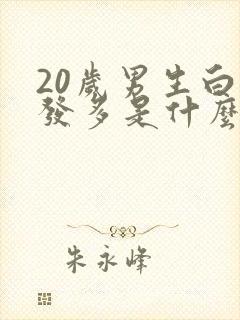 20歲男生白
發多是什麼
朱永峰